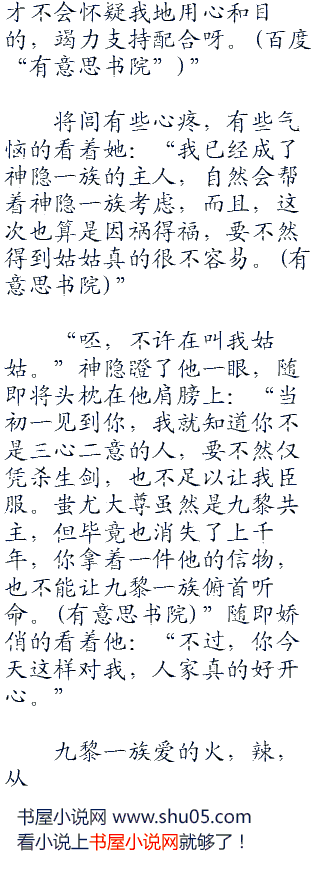 才不会怀疑我地用心和目
的，竭力支持配合呀。(百度
“有意思书院”)”
将闾有些心疼，有些气
恼的看着她：“我已经成了
神隐一族的主人，自然会帮
着神隐一族考虑，而且，这
次也算是因祸得福，要不然
得到姑姑真的很不容易。(有
意思书院)”
“呸，不许在叫我姑
姑。”神隐瞪了他一眼，随
即将头枕在他肩膀上：“当
初一见到你，我就知道你不
是三心二意的人，要不然仅
凭杀生剑，也不足以让我臣
服。蚩尤大尊虽然是九黎共
主，但毕竟也消失了上千
年，你拿着一件他的信物，
也不能让九黎一族俯首听
命。(有意思书院)”随即娇
俏的看着他：“不过，你今
天这样对我，人家真的好开
心。”
九黎一族爱的火，辣，
从
书屋小说网 www.shu05.com
看小说上书屋小说网就够了！